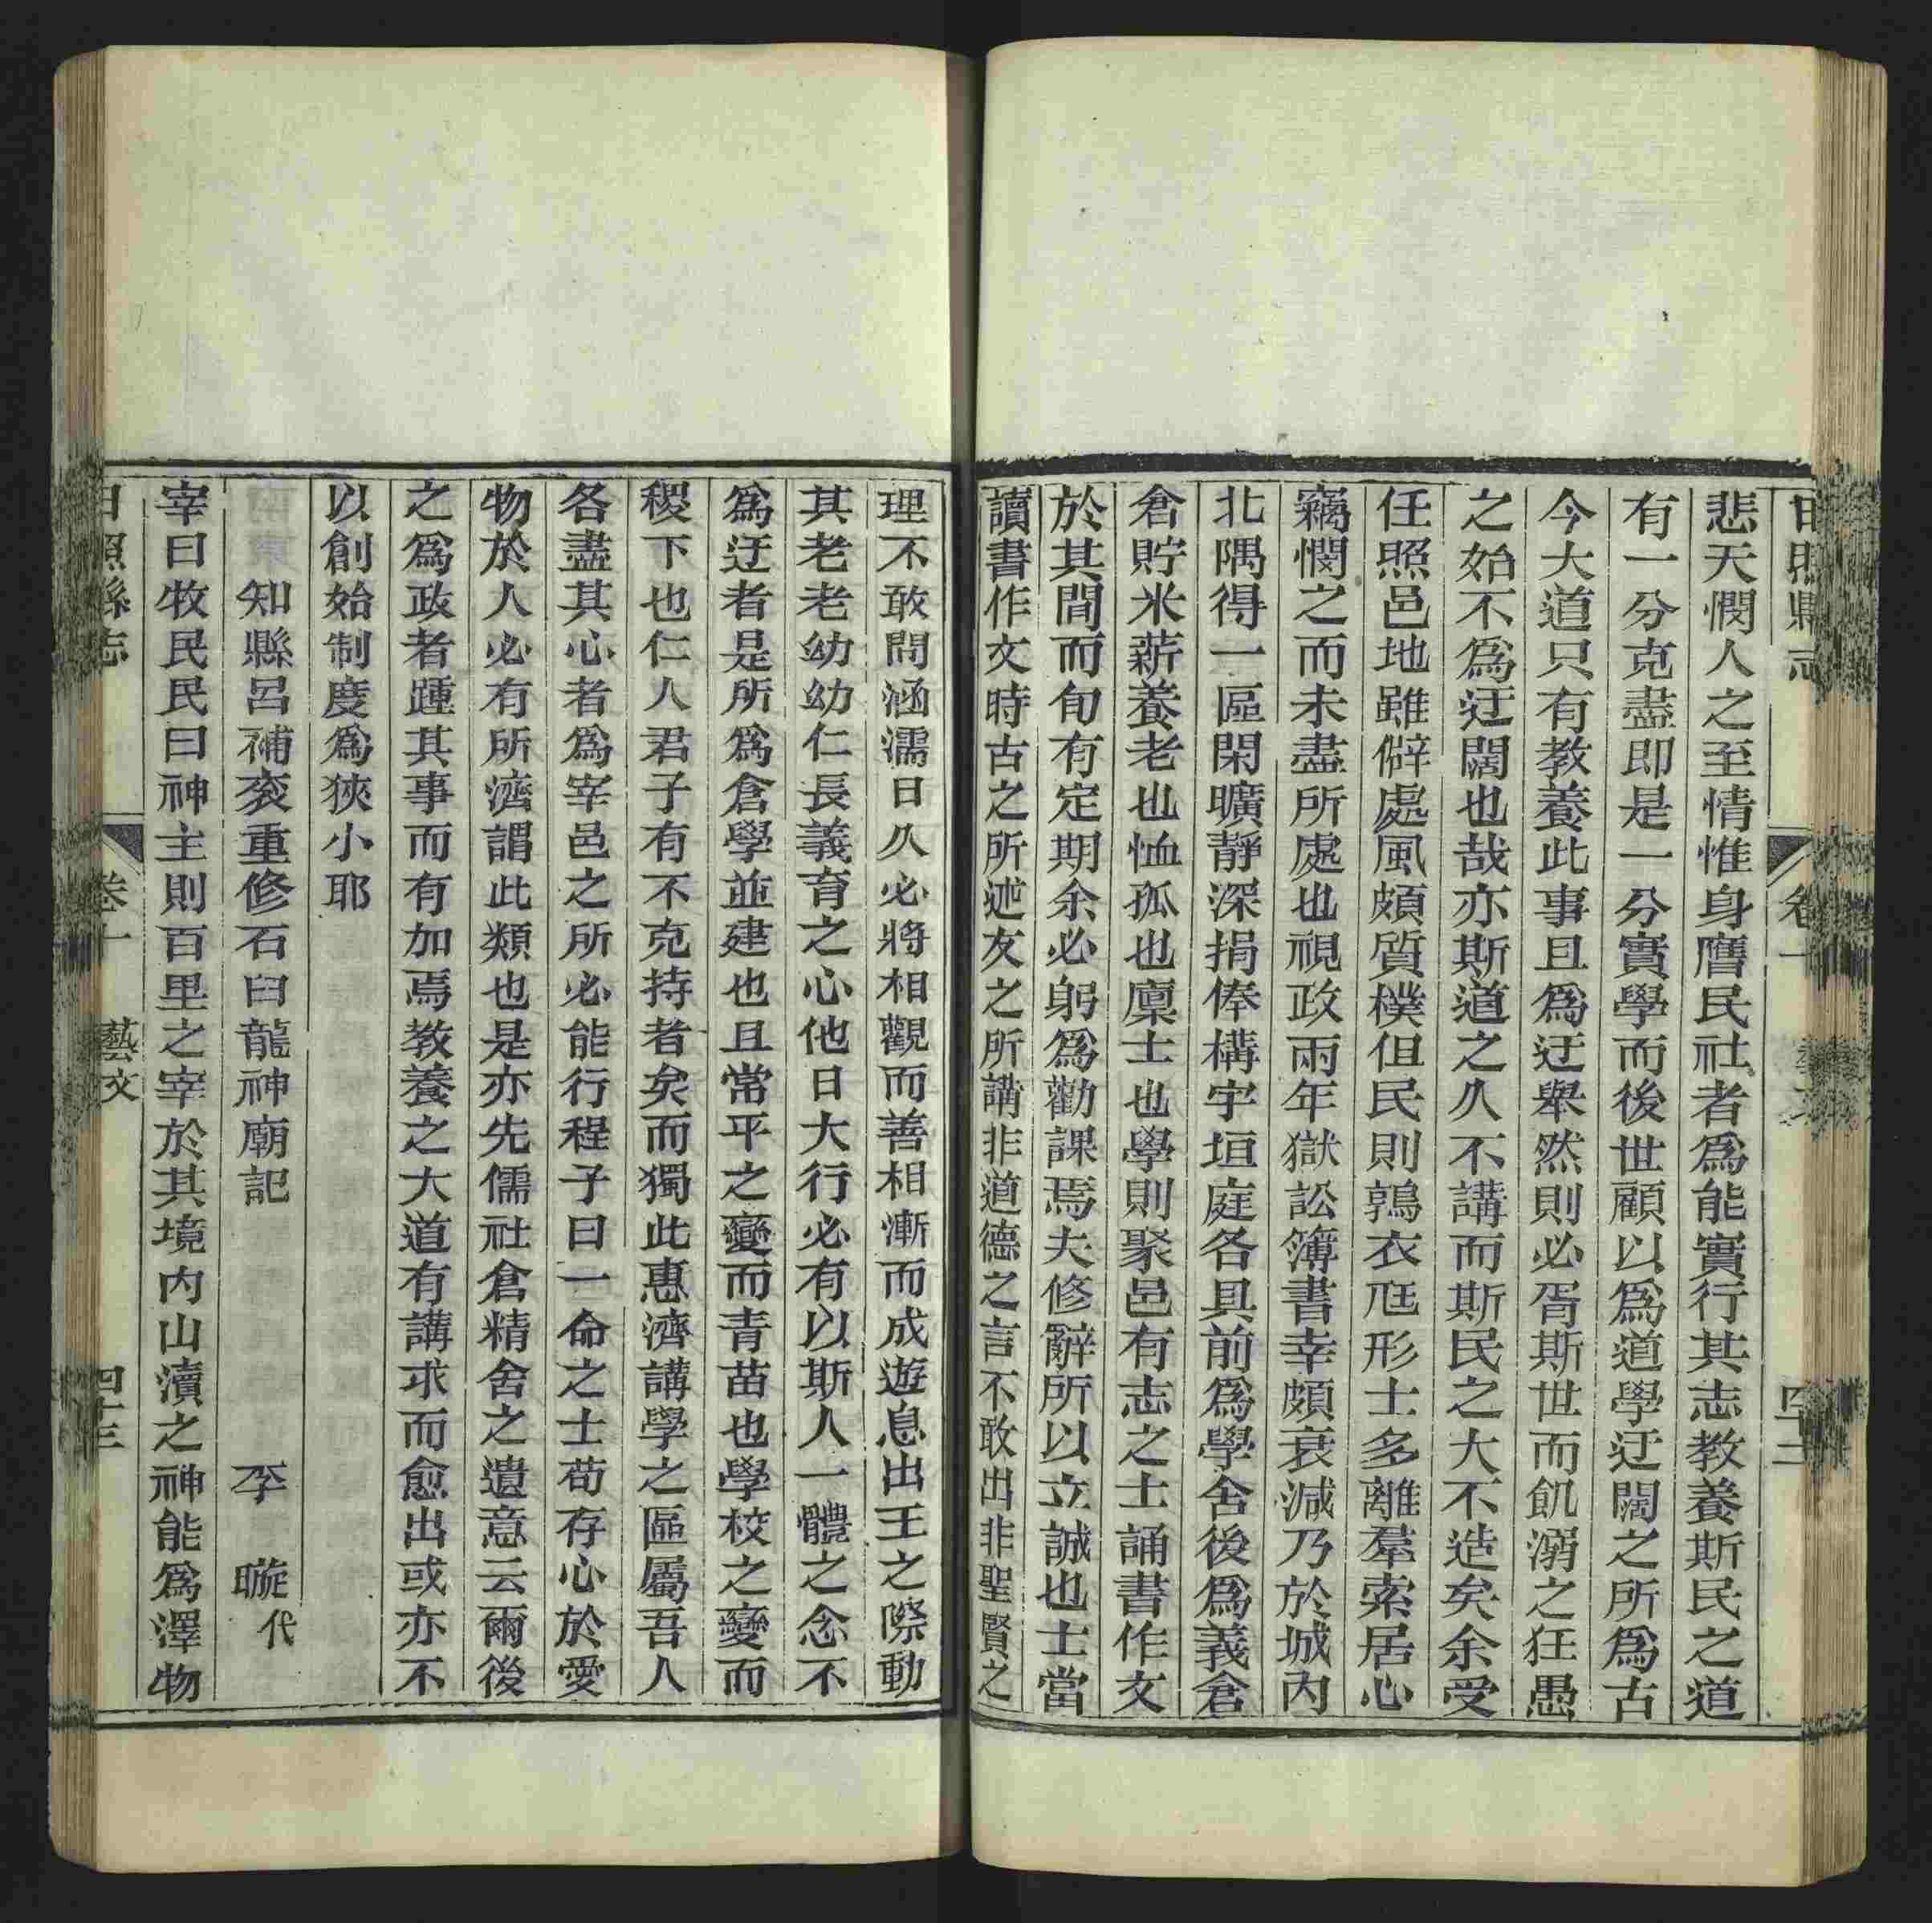 日照縣志 卷十 藝文 四十二
悲天憫人之至情惟身膺民社者爲能實行其志教養斯民之道
有一分克盡即是一分實學而後世顧以爲道學迂闊之所爲古
今大道只有教養此事且爲迂舉然則必胥斯世而飢溺之狂愚
之始不爲迂闊也哉亦斯道之久不講而斯民之大不造矣余受
任照邑地雖僻處風頗質樸但民則鶉衣尫形士多離羣索居心
竊憫之而未盡所處也視政兩年獄訟簿書幸頗衰減乃於城內
北隅得一區閑曠靜深捐俸構宇垣庭各具前爲學舍後爲義倉
倉貯米薪養老也恤孤也廩士也學則聚邑有志之士誦書作文
於其間而旬有定期余必躬爲勸課焉夫修辭所以立誠也士當
讀書作文時古之所述友之所講非道德之言不敢出非聖賢之
理不敢問涵濡日久必將相觀而善相漸而成遊息出王之際動
其老老幼幼仁長義育之心他日大行必有以斯人一體之念不
爲迂者是所爲倉學並建也且常平之變而青苗也學校之變而
稷下也仁人君子有不克持者矣而獨此惠濟講學之區屬吾人
各盡其心者爲宰邑之所必能行程子曰一命之士苟存心於愛
物於人必有所濟謂此類也是亦先儒社倉精舍之遺意云爾後
之爲政者踵其事而有加焉教養之大道有講求而愈出或亦不
以創始制度爲狹小耶
知縣呂補袞重修石臼龍神廟記 李 璇 代
宰曰牧民民曰神主則百里之宰於其境內山瀆之神能爲澤物
日照縣志 卷十 藝文 四十三